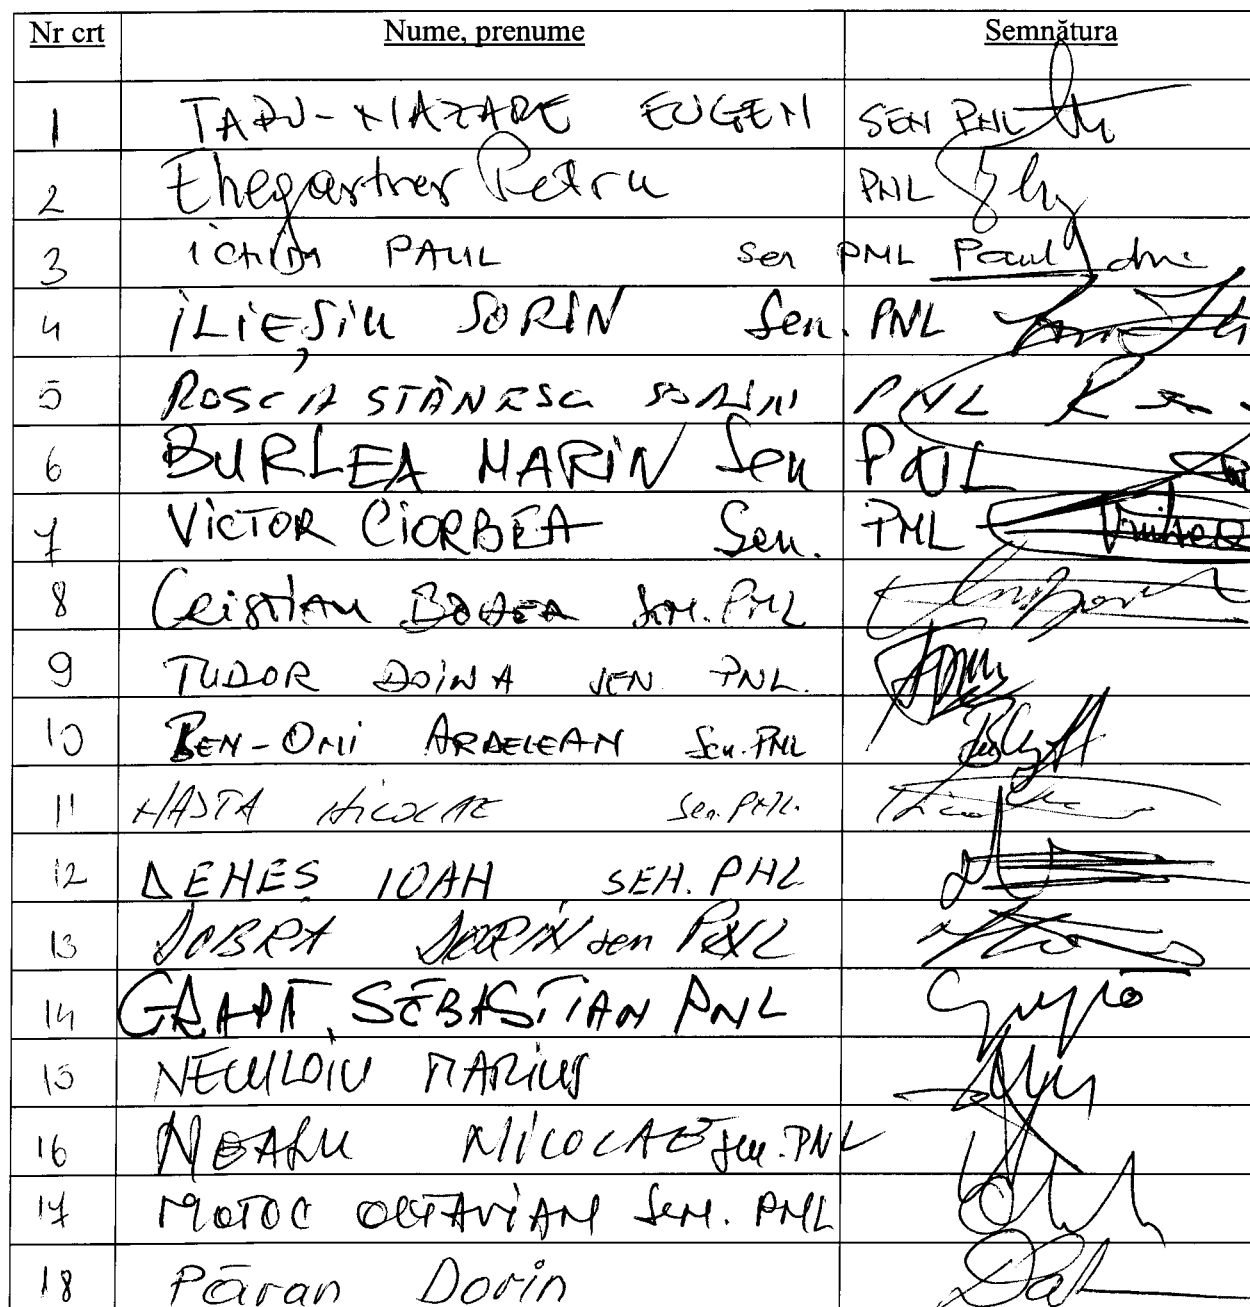 Nr crt Nume, prenume Semnătura
1 TARU-NAZARE EUGEN SEN PNL
2 Ehegartner Petru PNL
3 ichim PAUL sen PNL Paul
4 ILIEȘIU SORIN Sen. PNL
5 ROSCA STĂNESCU SORIN PNL
6 BURLEA MARIN Sen PNL
7 VICTOR CIORBEA Sen. PNL
8 Cristian BODEA SEN. PNL
9 TUDOR DOINA SEN PNL.
10 BEN-ONI ARDELEAN Sen. PNL
11 NASTA NICOLAE Sen. PNL.
12 DENEȘ IOAN SEN. PNL
13 DOBRA DORIN sen PNL
14 GRAPĂ SEBASTIAN PNL
15 NECULOIU MARIUS
16 NEAGU NICOLAE Sen. PNL
17 MOTOC OCTAVIAN Sen. PNL
18 Păran Dorin